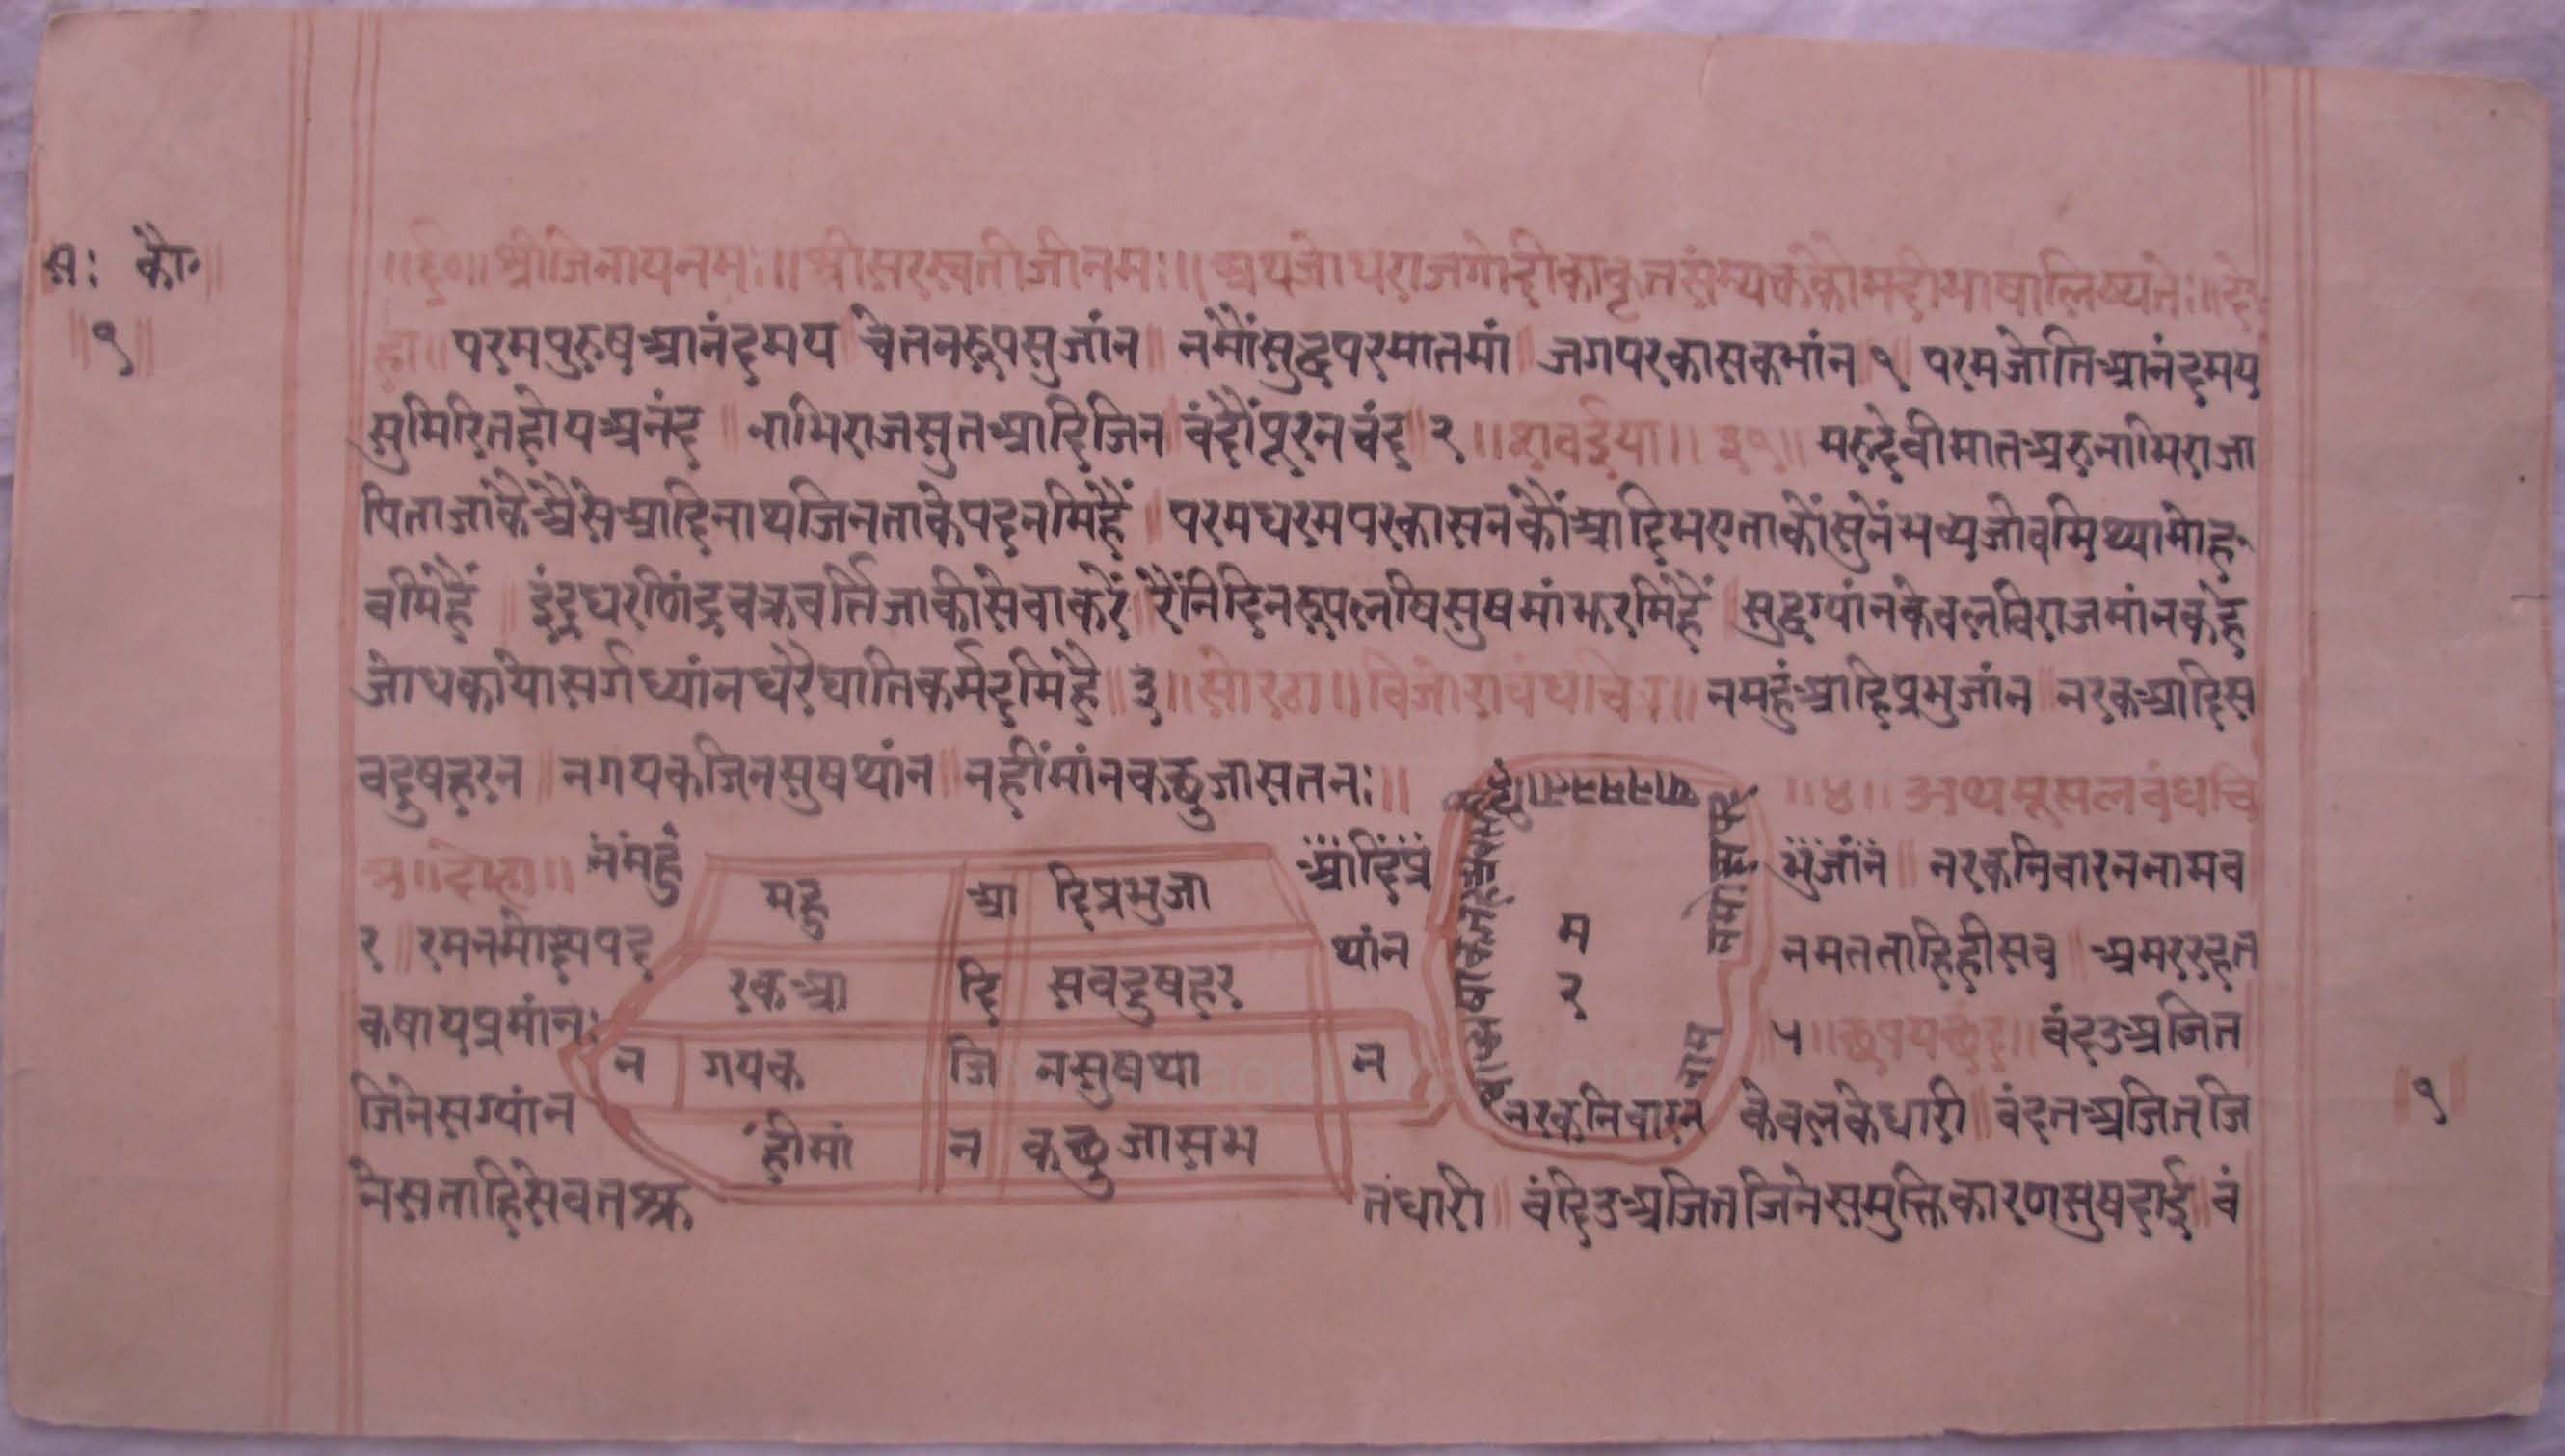 स: कौ॰
॥१॥
॥ई०॥ श्रीजिनायनमः॥ श्रीसरस्वतीजीनमः॥ अथजोधराजगोदीकाकृतसंम्यक्तकौमदीभाषालिष्यतेः॥दो
हा॥ परमपुरुषआनंदमय चेतनरूपसुजांन॥ नमौंसुद्धपरमातमां॥ जगपरकासकभांन १ परमजोतिआनंदमय
सुमिरितहोयअनंद॥ नाभिराजसुतआदिजिन वंदौंपूरनचंद २॥ शवईया॥ ३१॥ मरुदेवीमातअरुनाभिराजा
पिताजांकैअैसेआदिनाथजिनताकेपदनमिहैं॥ परमधरमपरकासनकौंआदिभएताकौंसुनेंभव्यजीवमिथ्यामोह॰
वमिंहैं॥ इंद्रधरणिंद्रचक्रवर्त्तिजाकीसेवाकरें रैंनिदिनरूपलषिसुषमांझरमिहैं॥ सुद्धग्यांनकेवलविराजमांनकहै
जोधकायोसर्गध्यांनधरैघातिकर्मदमिंहै॥३॥सोरठा॥विजोरावंधचित्र॥ नमहुंआदिप्रभुजांन॥ नरकआदिस
वदुषहरन॥ नगयकजिनसुषथांन॥ नहींमांनकछुजासतनः॥
॥४॥ अथमूसलबंधचि
त्र॥दोहा॥ नंमंहुं
आदिंप्रं
भुंजांनं॥ नरकनिवारननामव
र॥ रमनमोक्षपद
थांन
नमतताहिहीसव॥ अमररहत
कषायप्रमांनः
५॥छपयछंद॥ वंदउअजित
जिनेसग्यांन
केवलकेधारी॥ वंदतअजितजि
नेसताहिसेवत
तधारी॥ वंदिउअजितजिनेसमुक्तिकारणसुषदाई॥ वं
महु आ दिप्रभुजा
रकआ दि सवदुषहर
न गयक जि नसुषथा न
हीमां न कछुजासभ
म
र
नरकनिवारन
नाम
॥१॥